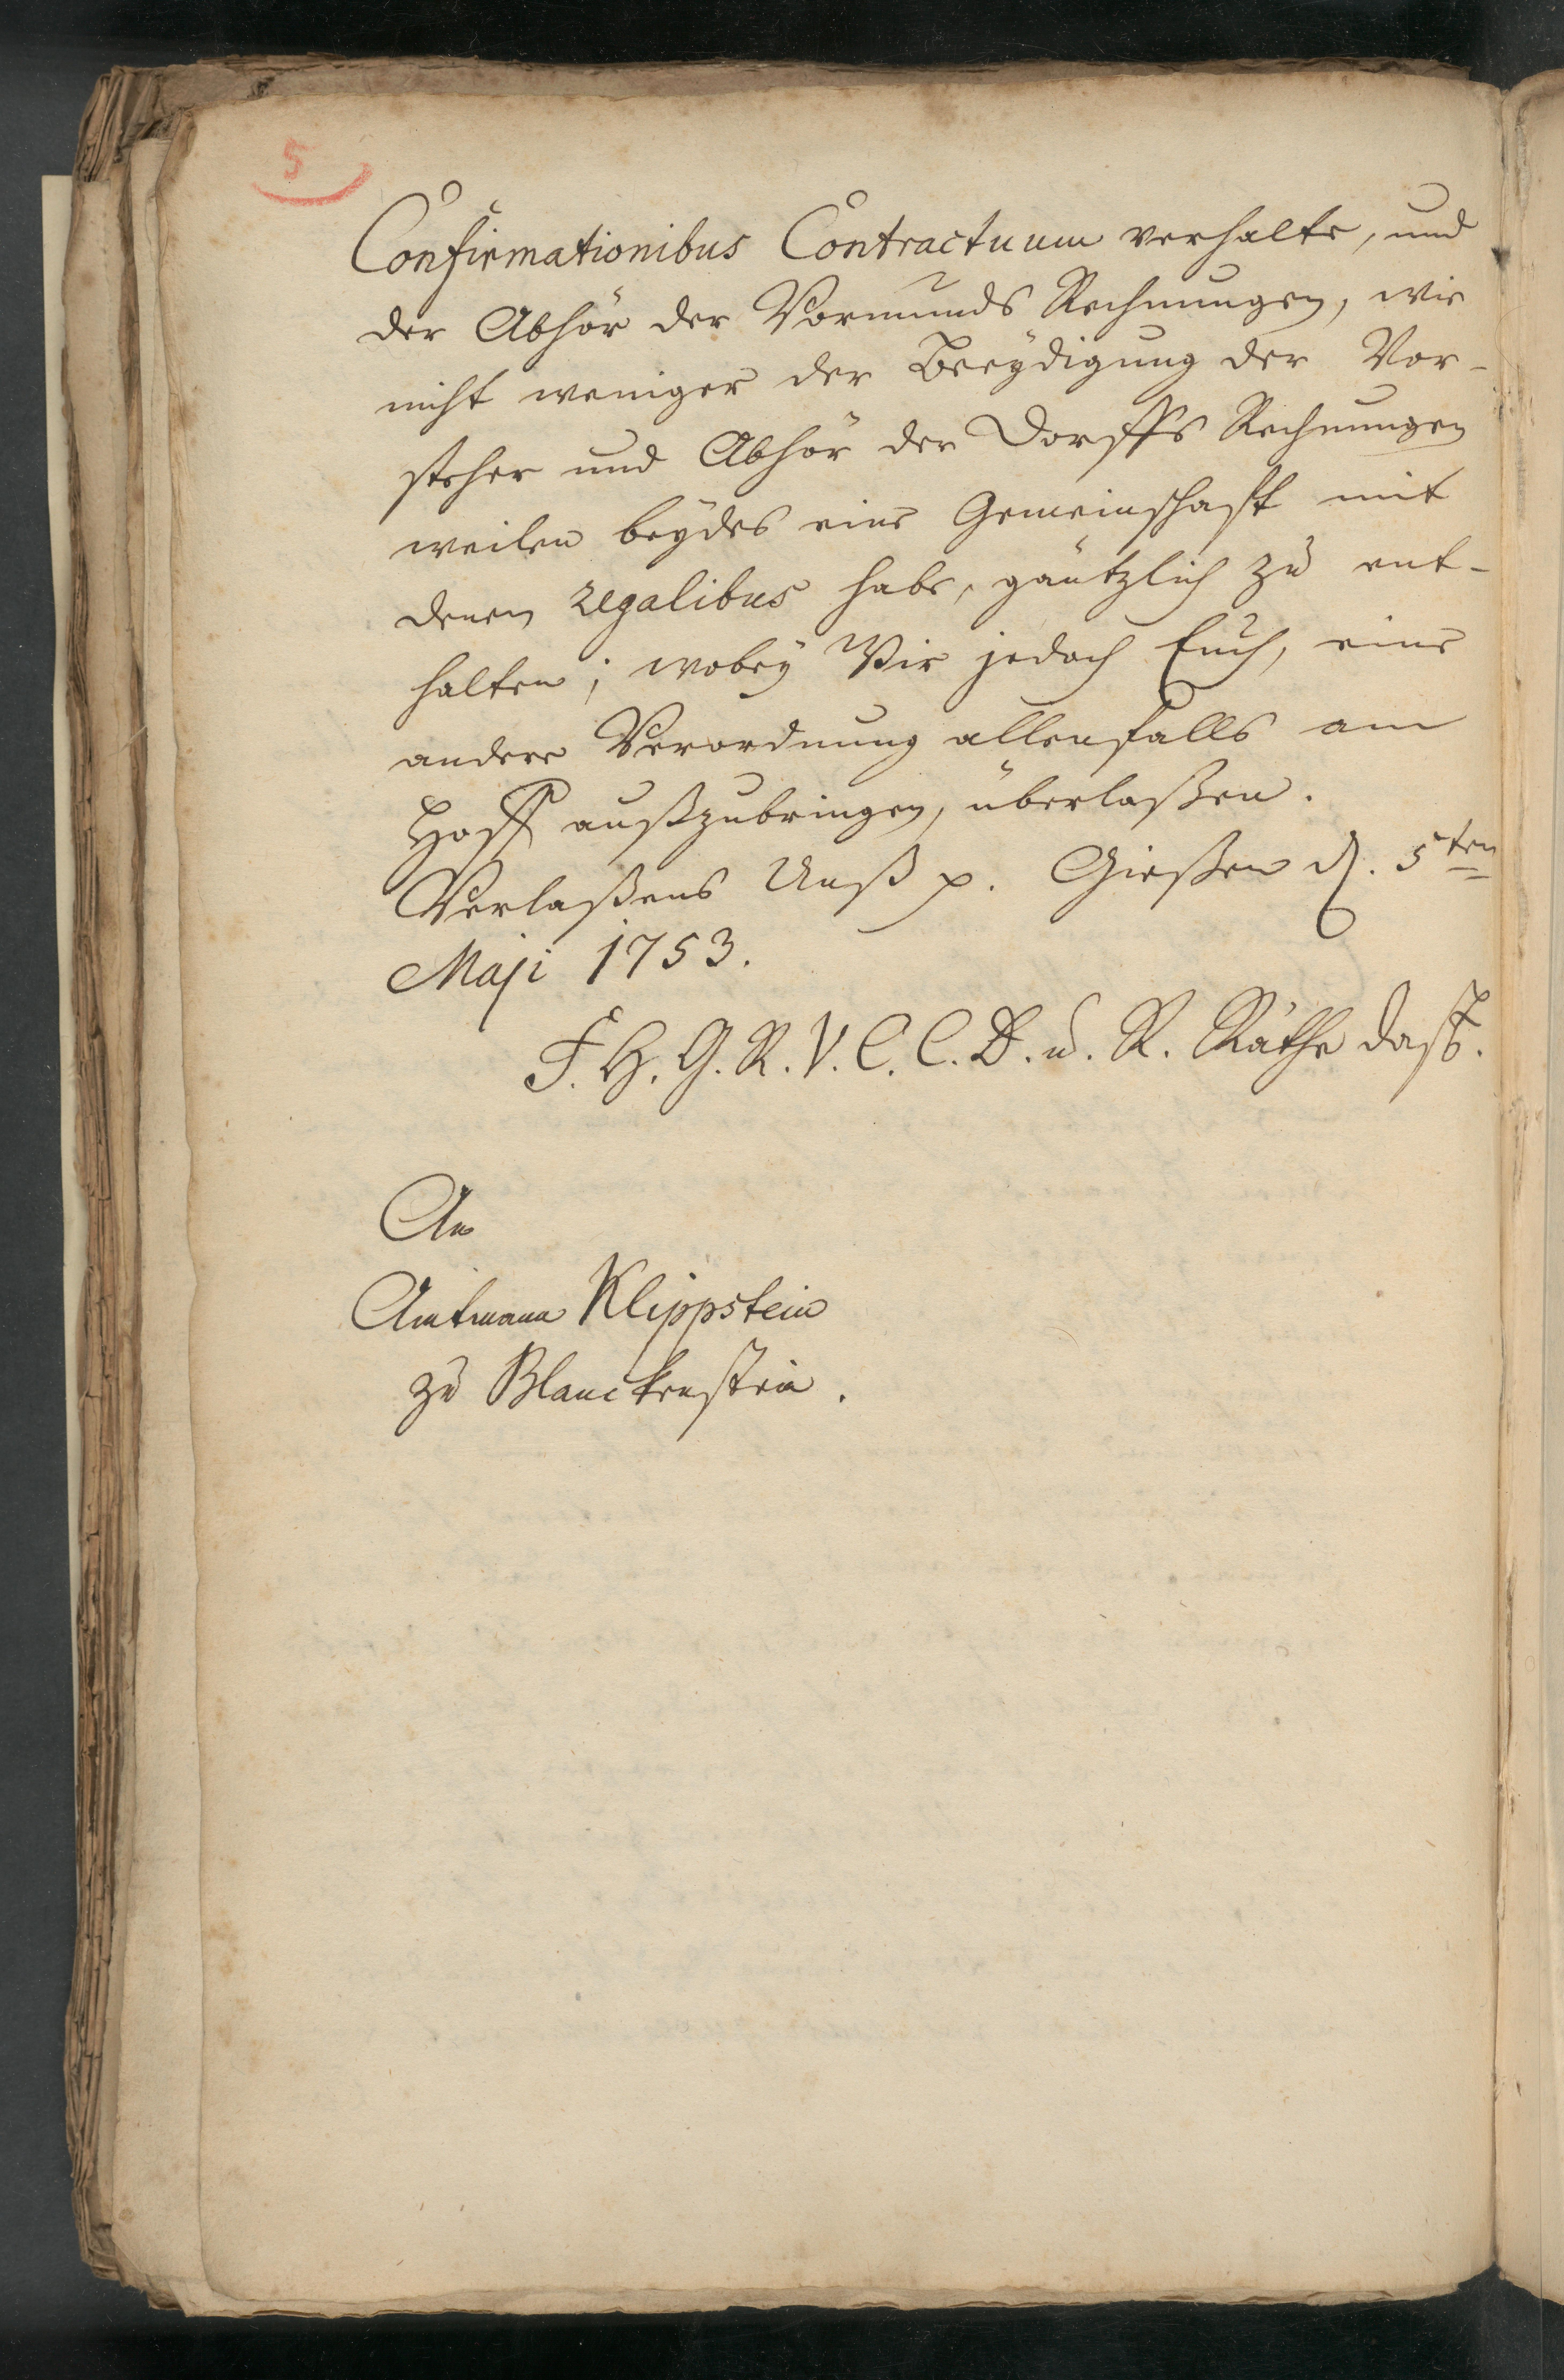 5
Confirmationibus Contractuum verhalte, und
der Abhör der Vormunds Rechnungen, wie
nicht weniger der Beeÿdigung der Vor-
steher und Abhör der Dorffs Rechnungen
weilen beÿdes eine Gemeinschafft mit
denen regalibus habe, gäntzlich zu ent-
halten; wobeÿ Wir jedoch Euch, eine
andere Verordnung allenfalls am
Hoff außzubringen, überlaßen.
Verlaßens Unß p. Gießen d. 5ten
Maji 1753.
F. H. G. R. V. C. C. D. u. R. Räthe daß.
An
Amtmann Klippstein
zu Blanckenstein.